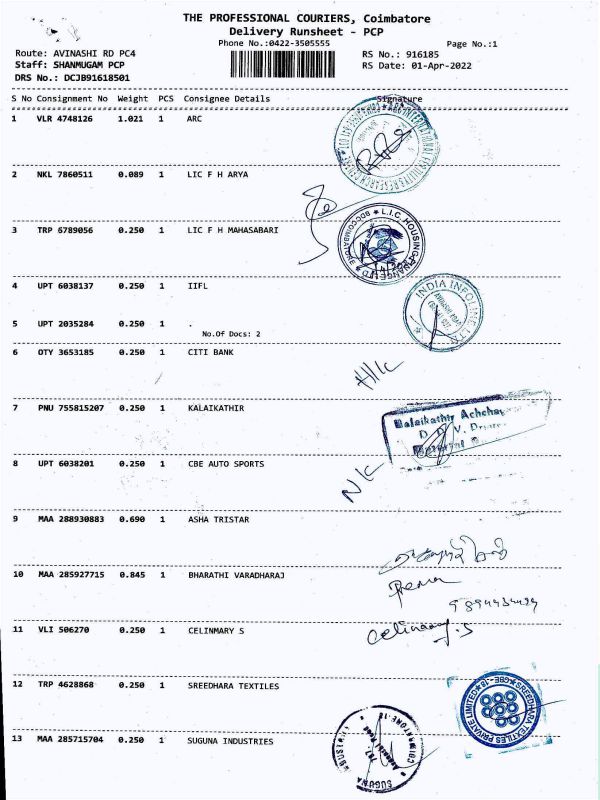 THE PROFESSIONAL COURIERS, Coimbatore
Delivery Runsheet - PCP
Phone No.:0422-3505555
Page No.:1
Route: AVINASHI RD PC4
RS No.: 916185
Staff: SHANMUGAM PCP
RS Date: 01-Apr-2022
DRS No.: DCJB91618501
S No Consignment No Weight PCS Consignee Details Signature
1 VLR 4748126 1.021 1 ARC
2 NKL 7860511 0.089 1 LIC F H ARYA
3 TRP 6789056 0.250 1 LIC F H MAHASABARI
L.I.C. HOUSING FINANCE LTD
4 UPT 6038137 0.250 1 IIFL
INDIA INFOLINE LTD
5 UPT 2035284 0.250 1 .
No.Of Docs: 2
6 OTY 3653185 0.250 1 CITI BANK
7 PNU 755815207 0.250 1 KALAIKATHIR
8 UPT 6038201 0.250 1 CBE AUTO SPORTS
9 MAA 288930883 0.690 1 ASHA TRISTAR
10 MAA 285927715 0.845 1 BHARATHI VARADHARAJ
11 VLI 506270 0.250 1 CELINMARY S
Celinmary.S
12 TRP 4628868 0.250 1 SREEDHARA TEXTILES
SREEDHARA TEXTILES PRIVATE LIMITED CBE-18
13 MAA 285715704 0.250 1 SUGUNA INDUSTRIES
SUGUNA